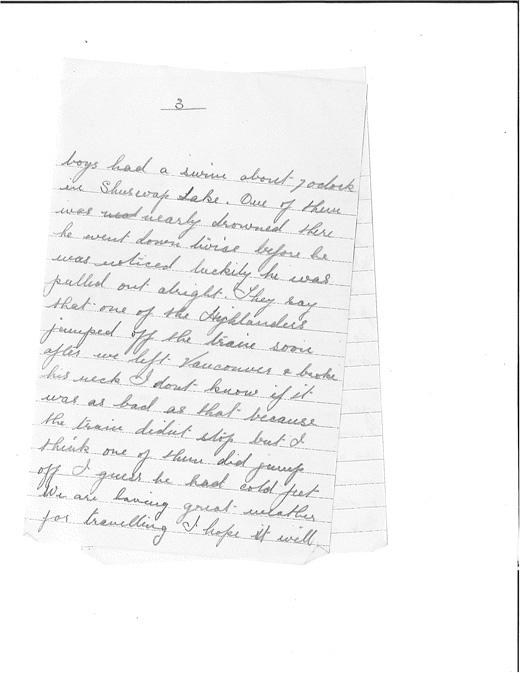 3
boys had a swim about 7 oclock
in Shuswap Lake. One of them
was nearly drowned there
he went down twise before he
was noticed luckily he was
pulled out alright. They say
that one of the Highlanders
jumped off the train soon
after we left Vancouver & broke
his neck I dont know if it
was as bad as that because
the train didnt stop but I
think one of them did jump
off I guess he had cold feet
We are having great weather
for travelling I hope it will